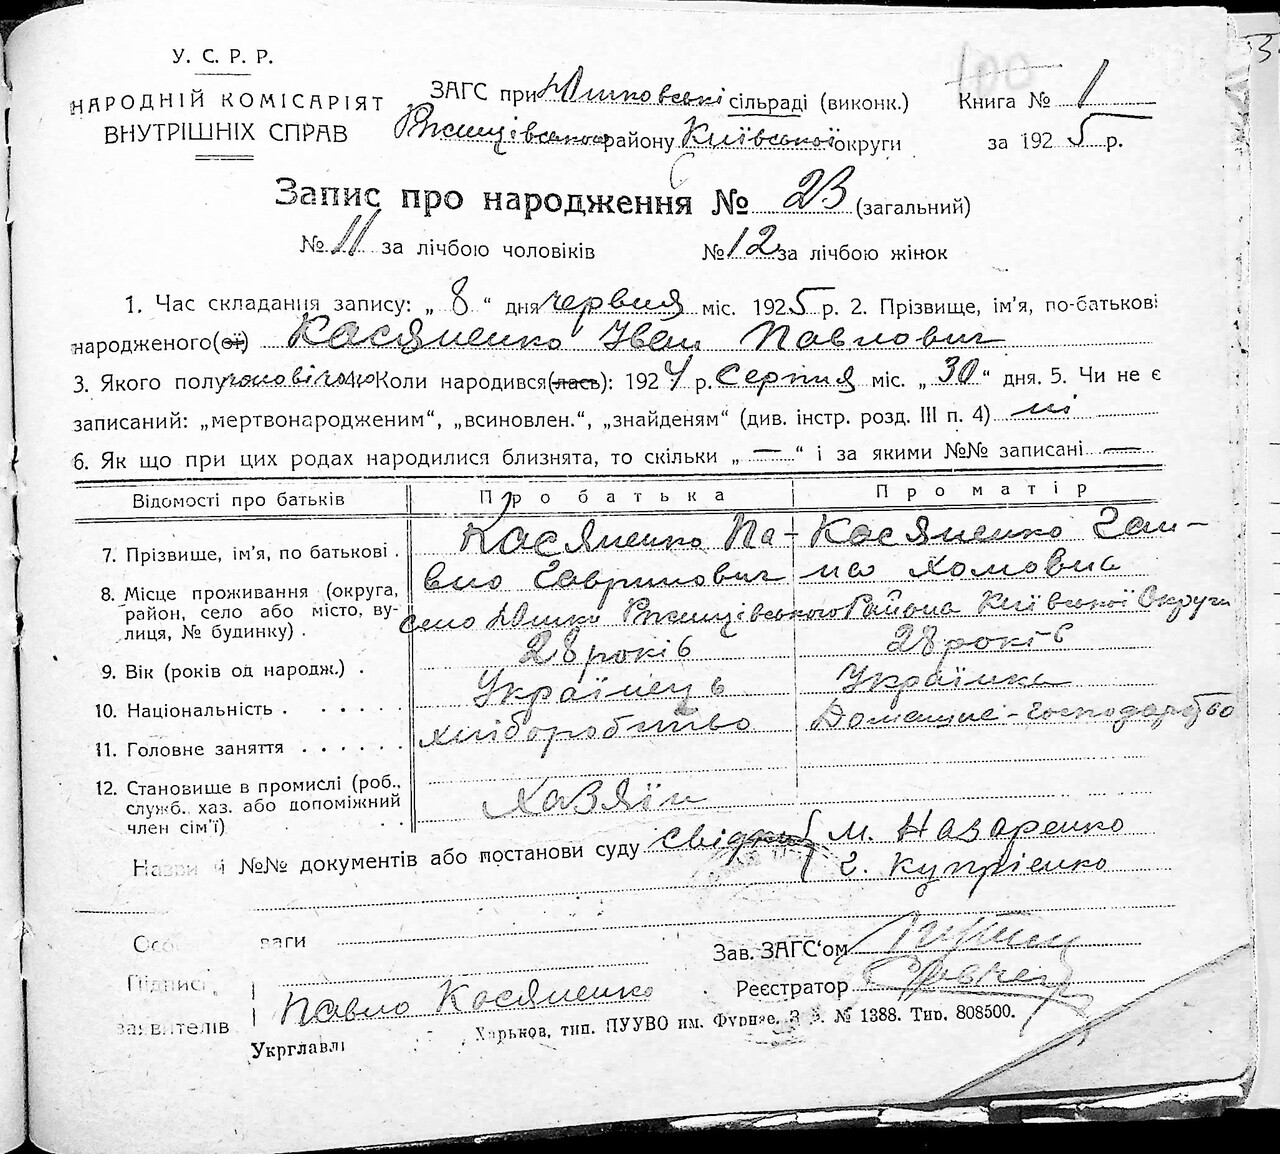 У. С. Р. Р.
НАРОДНІЙ КОМІСАРІЯТ
ВНУТРІШНІХ СПРАВ
ЗАГС при Юшковські сільраді (виконк.)
Ржищівського району Київської округи
100
Книга № 1
за 1925 р.
Запис про народження № 23 (загальний)
№ 11 за лічбою чоловіків № 12 за лічбою жінок
1. Час складання запису: „ 8 “ дня червня міс. 1925 р. 2. Прізвище, ім'я, по-батькові
народженого(ої) Касяненко Іван Павлович
3. Якого полу чоловічого 4. Коли народився(лась): 1924 р. Серпня міс. „ 30 “ дня. 5. Чи не є
записаний: „мертвонародженим“, „всиновлен.“, „знайденям“ (див. інстр. розд. III п. 4) ні
6. Як що при цих родах народилися близнята, то скільки „ — “ і за якими №№ записані —
Відомості про батьків Про батька Про матір
7. Прізвище, ім'я, по батькові . Касяненко Па- Касяненко Ган-
вло Гавринович на Хомовна
8. Місце проживання (округа,
район, село або місто, ву-
лиця, № будинку) . село Юшки Ржищівського Района Київської Округи
9. Вік (років од народж.) . 28 років 28 років
10. Національність . Українець Українка
11. Головне заняття . хліборобство Домашнє-господарство
12. Становище в промислі (роб.,
служб. хаз. або допоміжний
член сім'ї) Хазяїн
Назви і №№ документів або постанови суду свідки М. Назаренко
Г. Купрієнко
Особ ваги
Зав. ЗАГС'ом
Підписі
заявителів Павло Касяненко
Реєстратор
Укрглавлі Харьков, тип. ПУУВО им. Фрунзе. З № 1388. Тир. 808500.